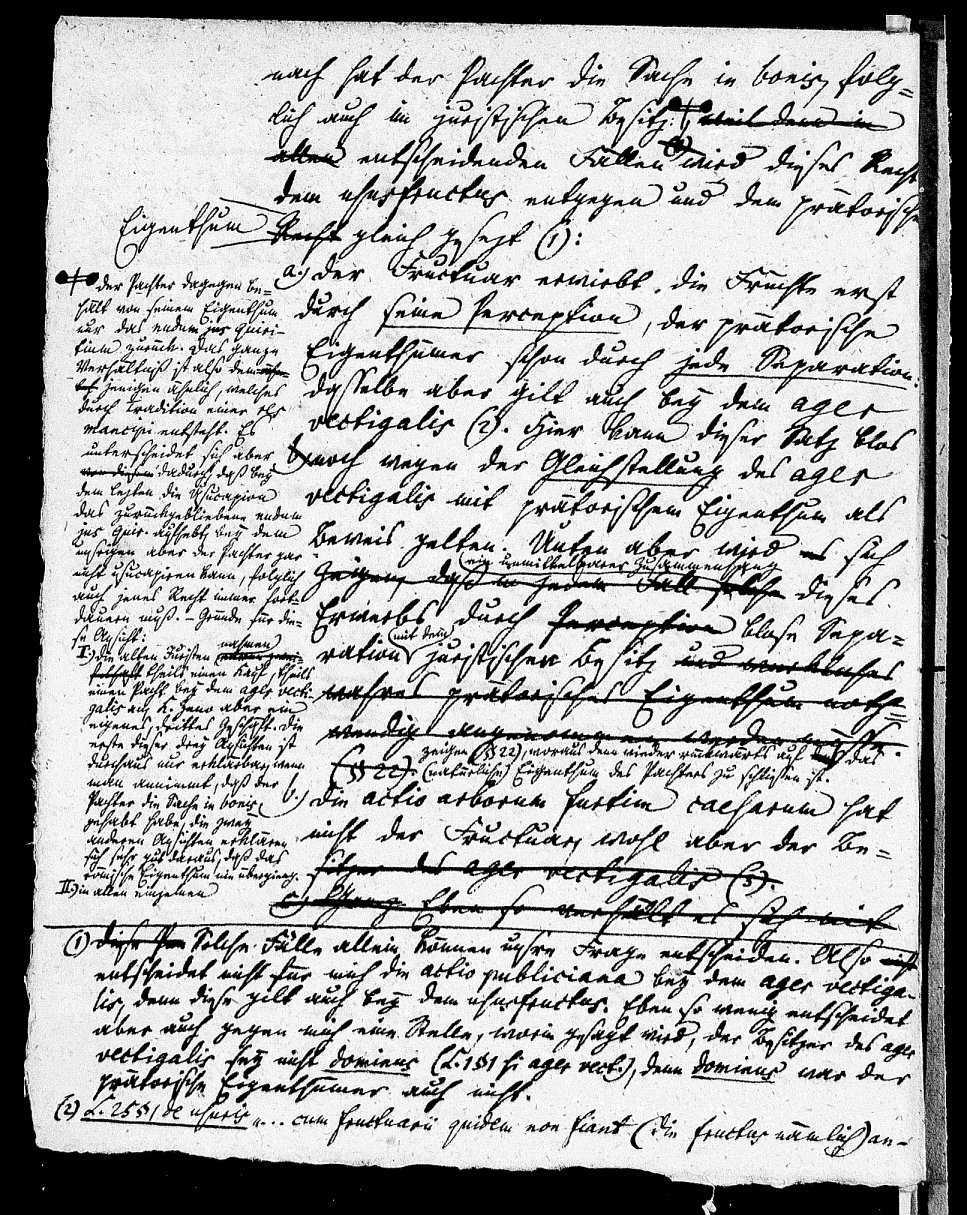 nach hat der Pachter die Sache in bonis, folg=
lich auch im juristischen Besitz. weil denn in
allen entscheidenden Fällen wird dieses Recht
dem ususfructus entgegen und dem prätorischen
Eigenthum Recht gleich gesezt (1):
a.) Der Fructuar erwirbt die Früchte erst
durch seine Perception, der prätorische
Eigenthümer schon durch jede Separation.
Dasselbe aber gilt auch bey dem ager
vectigalis (2). Hier kann dieser Satz blos
noch wegen der Gleichstellung des ager
vectigalis mit prätorischem Eigenthum als
Beweis gelten. Unten aber wird es sich
ein unmittelbarer Zusammenhang
zeigen, daß in jedem Fall solche dieses
Erwerbs durch Perception blose Sepa=
mit dem
ration juristischen Besitz und
wahres prätorisches Eigenthum noth=
wendig angenommen werden muß.
zeigen (§ 22), woraus denn wieder rückwärts auf das
(§ 22). (natürliche) Eigenthum des Pachters zu schließen ist.
b.) Die actio arborum furtim caesarum hat
nicht der Fructuar, wohl aber der Be=
sitzer des ager vectigalis (3).
c.) Eben so verhält es sich mit
der Pachter dagegen be=
hält von seinem Eigenthum
nur das nudum jus Quiri=
tium zurück. Das ganze
Verhältniß ist also dem
jenigen ähnlich, welches
durch Tradition einer res
mancipi entsteht. Es
unterscheidet sich aber
von diesem dadurch, daß bey
dem lezten die Usucapion
das zurückgebliebene nudum
jus Quir. aufhebt, bey dem
unsrigen aber der Pachter gar
nicht usucapiren kann, folglich
auch jenes Recht immer fort=
dauern muß. – Gründe für die=
se Ansicht:
I.) die alten Juristen nahmen
theils einen Kauf, theils
einen Pacht bey dem ager vecti=
galis an, K. Zeno aber ein
eigenes, drittes Geschäft. Die
erste dieser drey Ansichten ist
durchaus nur erklärbar, wenn
man annimmt, daß der
Pachter die Sache in bonis
gehabt habe, die zwey
anderen Ansichten erklären
sich sehr gut daraus, daß das
römische Eigenthum nie übergieng.
II.) in allen einzelnen
(1) Solche Fälle allein können unsre Frage entscheiden. Also
entscheidet nicht für mich die actio publiciana bey dem ager vectiga=
lis, denn diese gilt auch bey dem ususfructus. Eben so wenig entscheidet
aber auch gegen mich eine Stelle, worin gesagt wird, der Besitzer des ager
vectigalis sey nicht dominus (L. 1 § 1 si ager vect.), denn dominus war der
prätorische Eigenthümer auch nicht.
(2) L. 25 § 1 de usuris „... cum fructuarii quidem non fiant (die fructus nämlich) an=